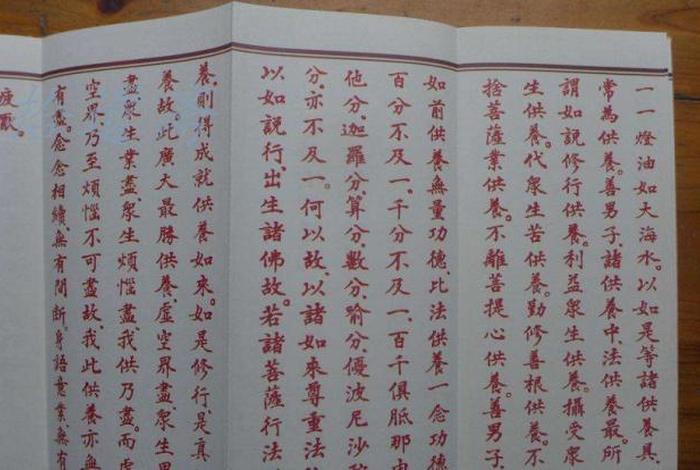 一一燈油如大海水。以如是等諸供養具、
常為供養。善男子、諸供養中、法供養最。所
謂如說修行供養。利益眾生供養。攝受眾
生供養。代眾生苦供養。勤修善根供養。不
捨菩薩業供養。不離菩提心供養。善男子、
如前供養無量功德、比法供養一念功德、
百分不及一、千分不及一、百千俱胝那由
他分、迦羅分、算分、數分、喻分、優波尼沙陀
分、亦不及一。何以故、以諸如來尊重法
以如說行、出生諸佛故。若諸菩薩行法
養、則得成就供養如來。如是修行、是真
養故。此廣大最勝供養、虛空界盡、眾生界
盡、眾生業盡、眾生煩惱盡、我供乃盡。而虛
空界、乃至煩惱不可盡故、我此供養亦無
有盡。念念相續、無有間斷。身語意業、無有
疲厭。